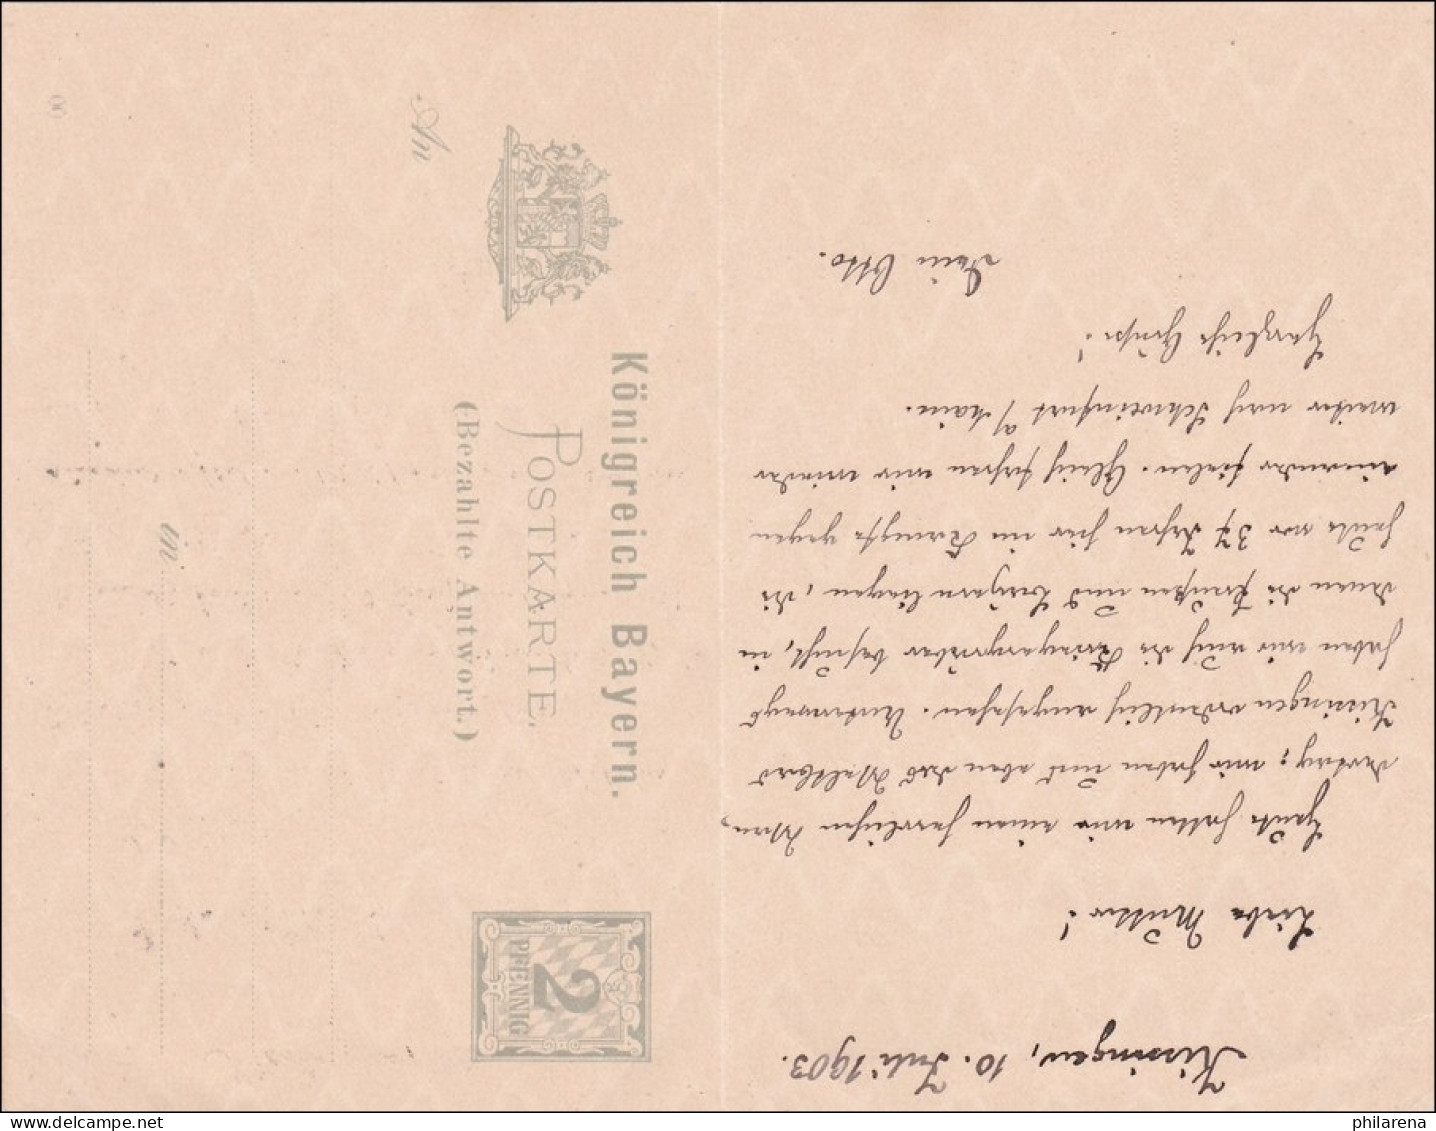 Kissingen, 10. Juli 1903.
Liebe Mutter!
Heute hatten wir einen herrlichen Wan-
dertag; wir haben uns eben das Weltbad
Kissingen ordentlich angesehen. Unterwegs
haben wir auch die Kriegergräber besucht, in
denen die Preußen und Bayern liegen, die
heute vor 37 Jahren hier im Kampfe gegen
einander fielen. Gleich fahren wir wieder
weiter nach Schweinfurt a/Main.
Herzliche Grüße!
Dein Otto.
Königreich Bayern.
POSTKARTE.
(Bezahlte Antwort.)
An
in
2
PFENNIG
philarena
delcampe.net